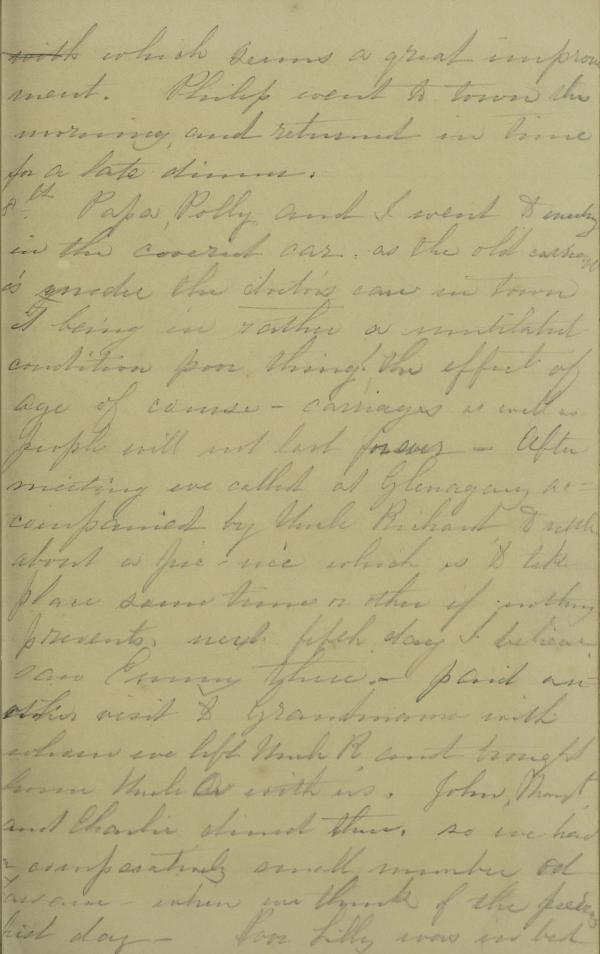 with which seems a great improve
ment. Philip went to town this
morning and returned in time
for a late dinner.
8th. Papa, Polly and I went to meeting
in the covered car. as the old carriage
is under the doctor's care in town
It being in rather a mutilated
condition poor thing! the effect of
age of course - carriages as well as
people will not last forever - After
meeting we called at Glenageary ac=
companied by Uncle Richard to settle
about a pic-nic which is to take
place some time or other if nothing
prevents. next fifth day I believe
saw Emmy there. - paid an
other visit to Grandmama with
whom we left Uncle R and brought
home Uncle with us. John,
and Charlie dined there. so we had
a comparatively small number at
- when we think of the previous
first day - Poor Lilly was in bed